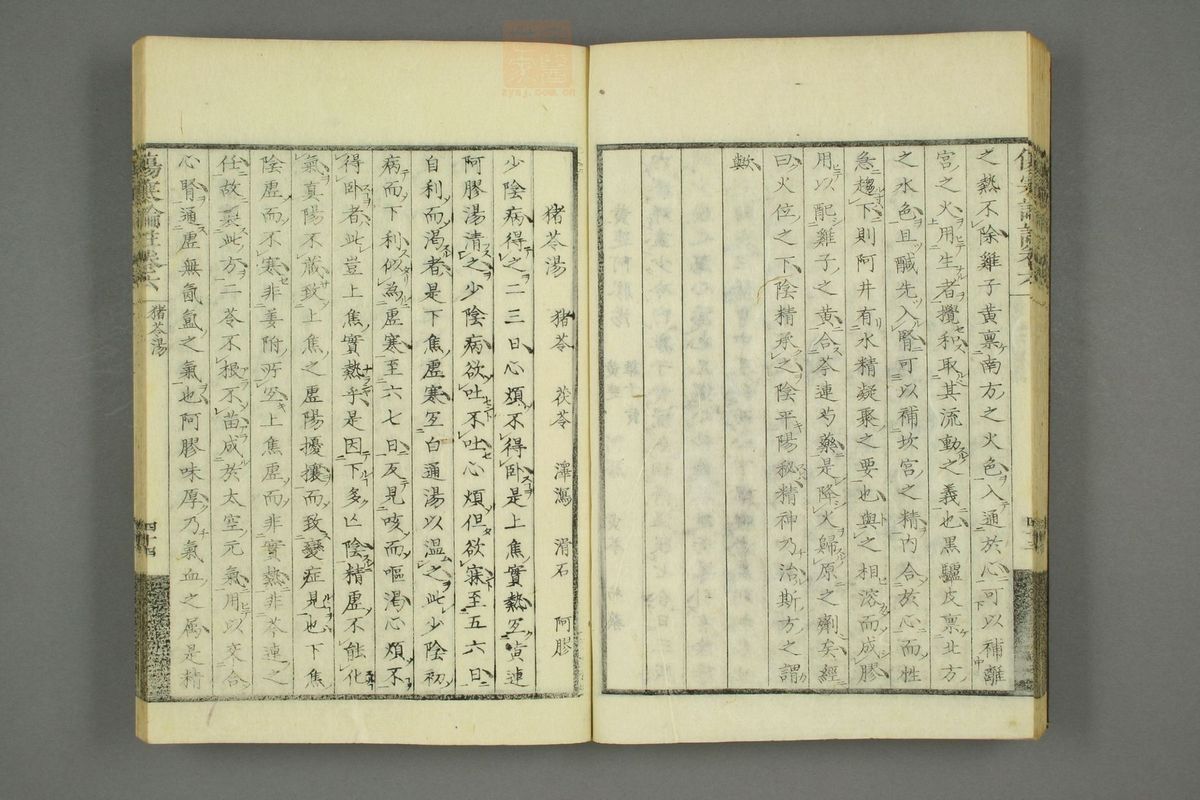 之熱不除雞子黃稟南方之火色入通於心可以補離
宮之火用生者攪和取其流動之義也黒驢皮稟北方
之水色且醎先入腎可以補坎宮之精内合於心而性
急趨下則阿井有水精凝聚之要也與之相溶而成膠
用以配雞子之黃合芩連芍藥是降火歸原之劑矣經
曰火位之下陰精承之陰平陽秘精神乃治斯方之謂
歟
猪苓湯　猪苓　茯苓　澤瀉　滑石　阿膠
少陰病得之二三日心煩不得卧是上焦實熱宐黃連
阿膠湯清之少陰病欲吐不吐心煩但欲寐至五六日
自利而渴者是下焦虛寒宐白通湯以温之此少陰初
病而下利似為虛寒至六七日反見咳而嘔渴心煩不
得卧者此豈上焦實熱乎是因下多亡陰精虛不能化
氣真陽不藏致上焦之虛陽擾攘而致變症見也下焦
陰虛而不寒非姜附所宐上焦虛而非實熱非芩連之
任故製此方二苓不根不苗成於太空元氣用以交合
心腎通虛無氤氳之氣也阿膠味厚乃氣血之属是精
傷寒論註卷六
猪苓湯
四十四
四十三
zysj.com.cn